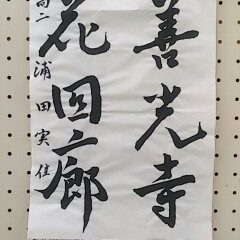 善光寺
花回廊
高二 浦田実佳